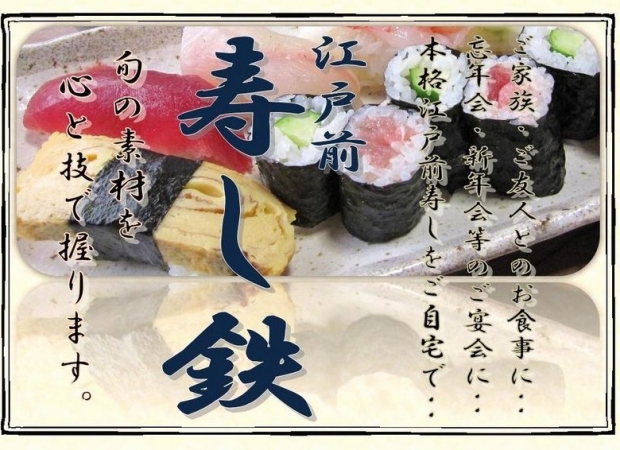 ご家族・ご友人とのお食事に・・
忘年会・新年会等のご宴会に・・
本格江戸前寿しをご自宅で・・
江戸前
寿し鉄
旬の素材を
心と技で握ります。